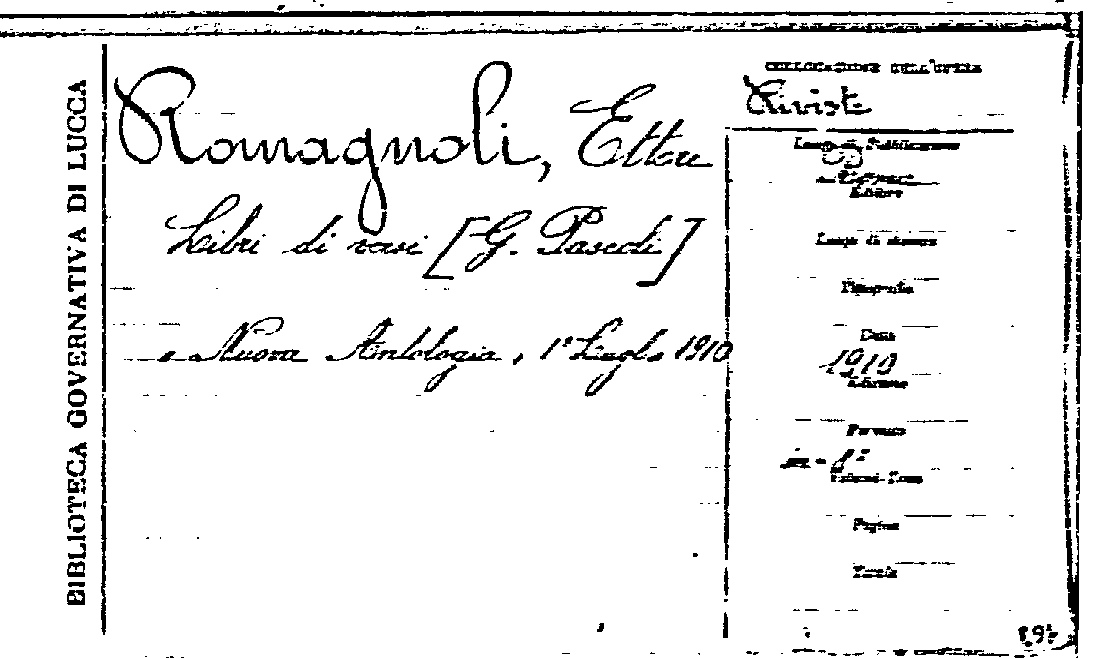 BIBLIOTECA GOVERNATIVA DI LUCCA
Romagnoli, Ettore
Libri di versi [G. Pascoli]
Nuova Antologia, 1° Luglio 1910
COLLOCAZIONE DELL'OPERA
Riviste
Luogo di Pubblicazione
Editore
Luogo di stampa
Tipografia
Data
1910
Edizione
Formato
in-8°
Pagine
Tavole